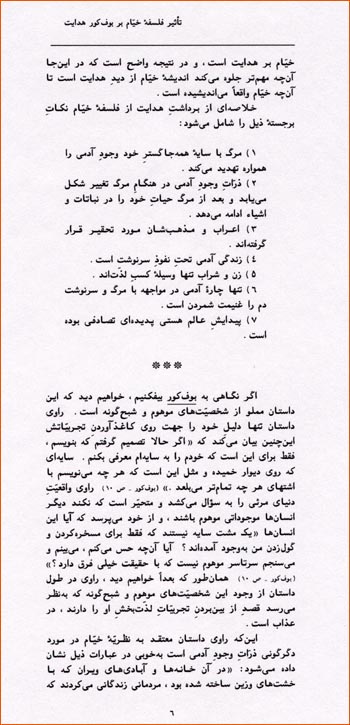 تأثیر فلسفهٔ خیّام بر بوف‌کور هدایت
خیّام بر هدایت است ، و در نتیجه واضح است که در این‌جا
آن‌چه مهم‌تر جلوه می‌کند اندیشهٔ خیّام از دیدِ هدایت است تا
آن‌چه خیّام واقعاً می‌اندیشیده است .
خلاصه‌ای از برداشتِ هدایت از فلسفهٔ خیّام نکاتِ
برجستهٔ ذیل را شامل می‌شود:
۱) مرگ با سایهٔ همه‌جا‌گستر خود وجودِ آدمی را
همواره تهدید می‌کند .
۲) ذرّاتِ وجودِ آدمی در هنگامِ مرگ تغییر شکل
می‌یابد و بعد از مرگ حیاتِ خود را در نباتات و
اشیاء ادامه می‌دهد .
۳) اعراب و مذهب‌شان مورد تحقیر قرار
گرفته‌اند .
۴) زندگی آدمی تحتِ نفوذِ سرنوشت است .
۵) زن و شراب تنها وسیلهٔ کسبِ لذّت‌اند .
۶) تنها چارهٔ آدمی در مواجهه با مرگ و سرنوشت
دم را غنیمت شمردن است .
۷) پیدایشِ عالم هستی پدیده‌ای تصادفی بوده
است .
***
اگر نگاهی به بوف‌کور بیفکنیم ، خواهیم دید که این
داستان مملو از شخصیّت‌های موهوم و شبح‌گونه است . راوی
داستان تنها دلیل خود را جهت روی کاغذ‌آوردن تجربیّاتش
این‌چنین بیان می‌کند که «اگر حالا تصمیم گرفتم که بنویسم ،
فقط برای این است که خودم را به سایه‌ام معرفی بکنم . سایه‌ای
که روی دیوار خمیده و مثل این است که هر چه می‌نویسم با
اشتهای هر چه تمام‌تر می‌بلعد .» (بوف‌کور ـ ص ۱۰) راوی واقعیّتِ
دنیای مرئی را به سؤال می‌کشد و متحیّر است که نکند دیگر
انسان‌ها موجوداتی موهوم باشند ، و از خود می‌پرسد که آیا این
انسان‌ها «یک مشت سایه نیستند که فقط برای مسخره‌کردن و
گول‌زدن من به‌وجود آمده‌اند ؟ آیا آن‌چه حس می‌کنم ، می‌بینم و
می‌سنجم سرتاسر موهوم نیست که با حقیقت خیلی فرق دارد؟»
(بوف‌کور ـ ص ۱۰) همان‌طور که بعداً خواهیم دید ، راوی در طول
داستان از وجود این شخصیّت‌های موهوم و شبح‌گونه که به‌نظر
می‌رسد قصدِ از بین‌بردنِ تجربیّاتِ لذّت‌بخشِ او را دارند ، در
عذاب است .
این‌که راوی داستان معتقد به نظریّهٔ خیّام در مورد
دگرگونی ذرّاتِ وجودِ آدمی است به‌خوبی در عباراتِ ذیل نشان
داده می‌شود: «در آن خانه‌ها و آبادی‌های ویران که با
خشت‌های وزین ساخته شده بود ، مردمانی زندگانی می‌کردند که
۶